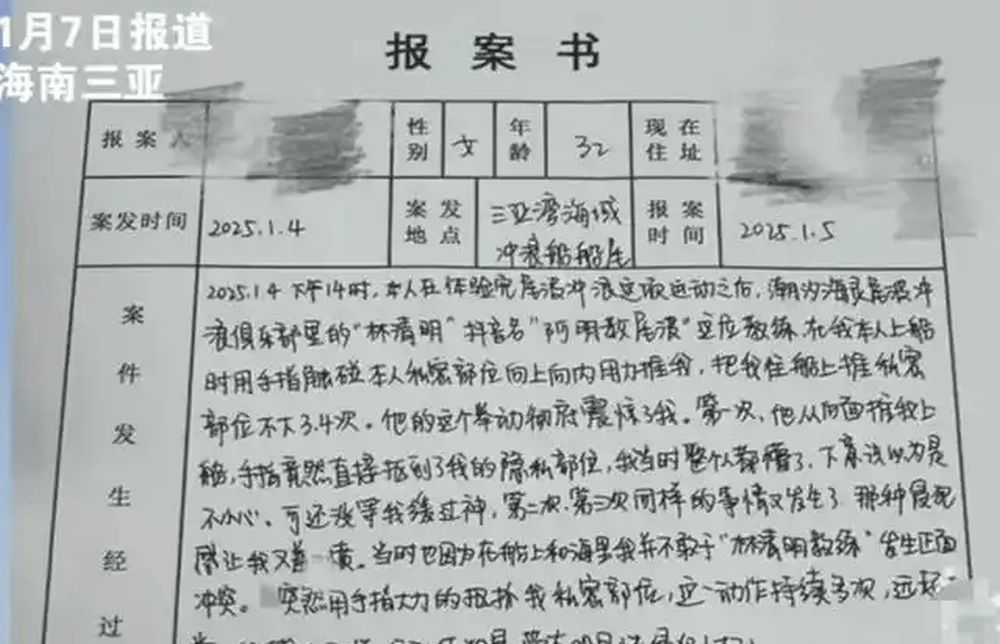 1月7日报道
海南三亚
报案书
报案人 性别 女 年龄 32 现在住址
案发时间 2025.1.4 案发地点 三亚湾海域冲浪船船尾 报案时间 2025.1.5
案件发生经过
2025.1.4 下午14时,本人在体验完尾波冲浪这项运动之后,潮汐海浪尾波冲
浪俱乐部里的“林清明”抖音名“阿明教尾波”这位教练,在我本人上船
时用手指触碰本人私密部位向上向内用力推我,把我往船上推私密
部位不下3.4次。他的这个举动彻底震惊了我。第一次,他从后面推我上
船,手指竟然直接抵到了我的隐私部位,我当时整个人都懵了,下意识以为是
不小心。可还没等我缓过神,第二次.第三次同样的事情又发生了 那种侵犯
感让我又羞 愤。当时也因为在船上和海里我并不敢于“林清明教练”发生正面
冲突。 突然用手指大力的 我私密部位,这一动作持续多次,远超